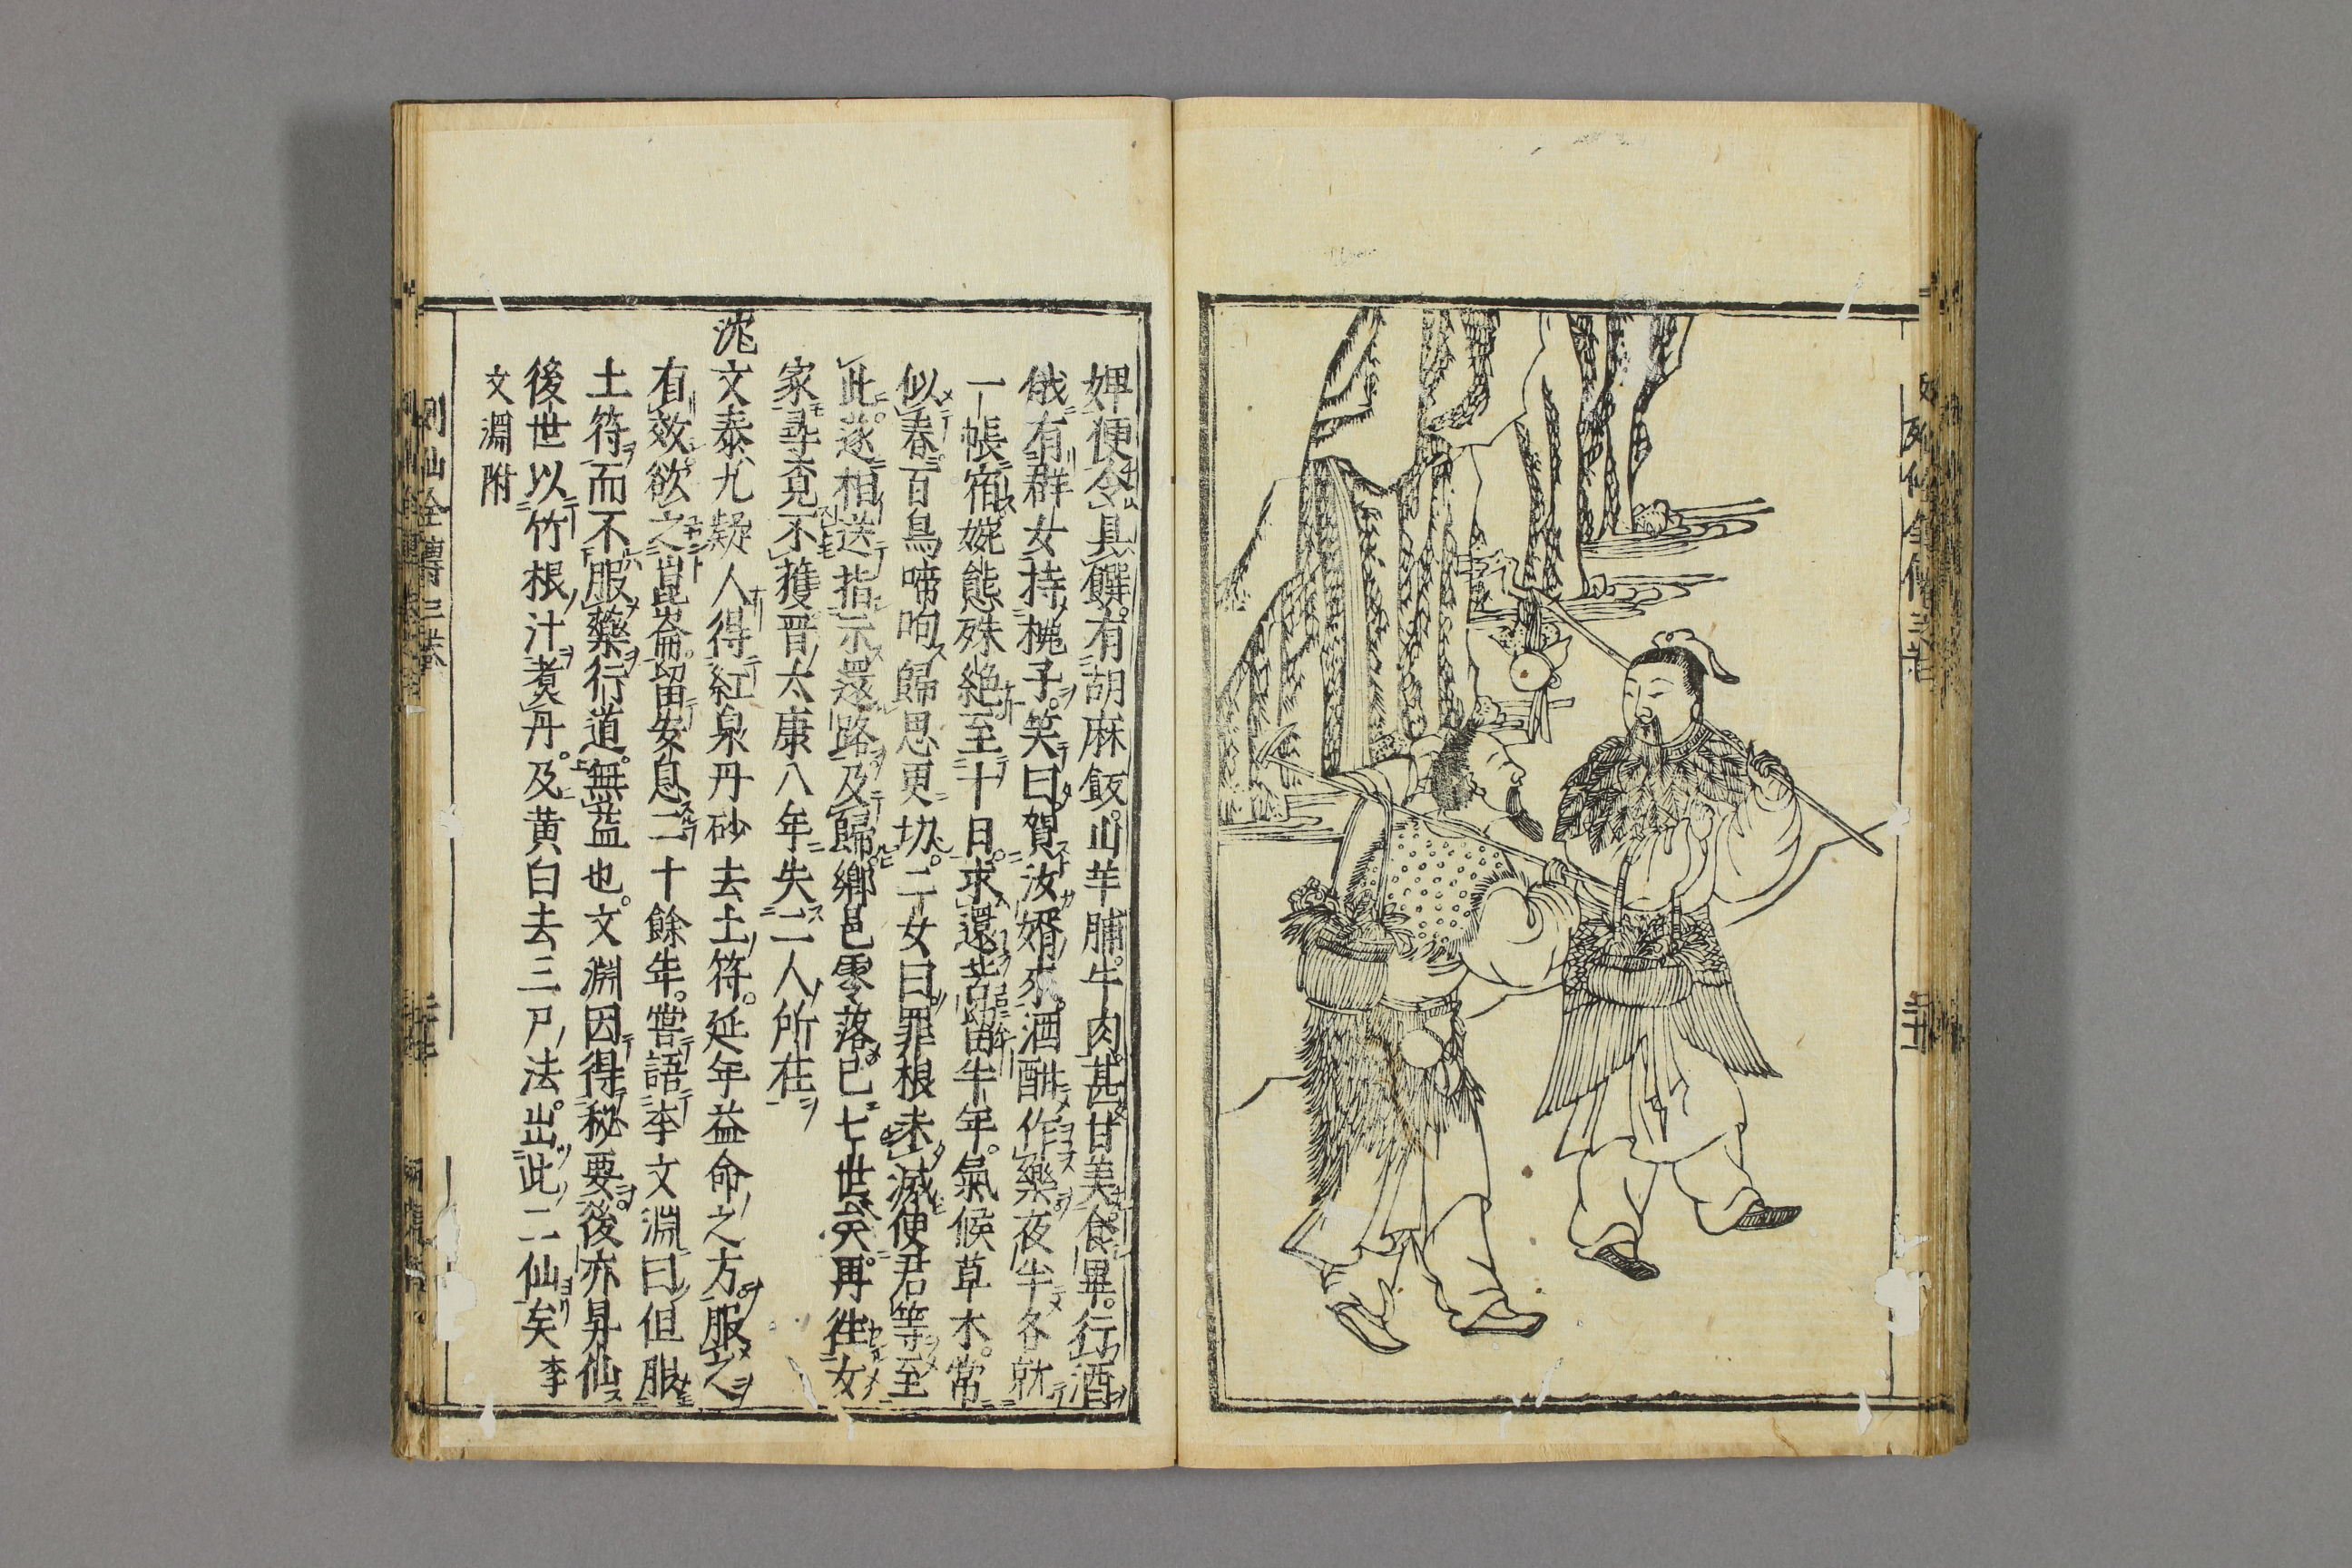 列仙全傳三卷
三十
婢便令具饌。有胡麻飯。山羊脯。牛肉。甚甘美。食畢。行酒
俄有群女持桃子。笑曰。賀汝婿來。酒酣作樂夜半各就
一帳宿。婉態殊絶至十日。求還苦留半年。氣候草木。常
似春。百鳥啼呴歸思更切。二女曰。罪根未滅使君等至
此。遂相送指示還路及歸。鄉邑零落已七世矣。再往女
家尋覓不獲晋太康八年失二人所在
沈文泰九疑人得紅泉丹砂去土符。延年益命之方。服之
有效欲之崑崙。留安息二十餘年。嘗語李文淵曰但服
土符而不服藥行道。無益也。文淵因得秘要。後亦昇仙
後世以竹根汁煑丹。及黄白去三尸法。出此二仙矣 李
文淵附
列仙全傳三卷